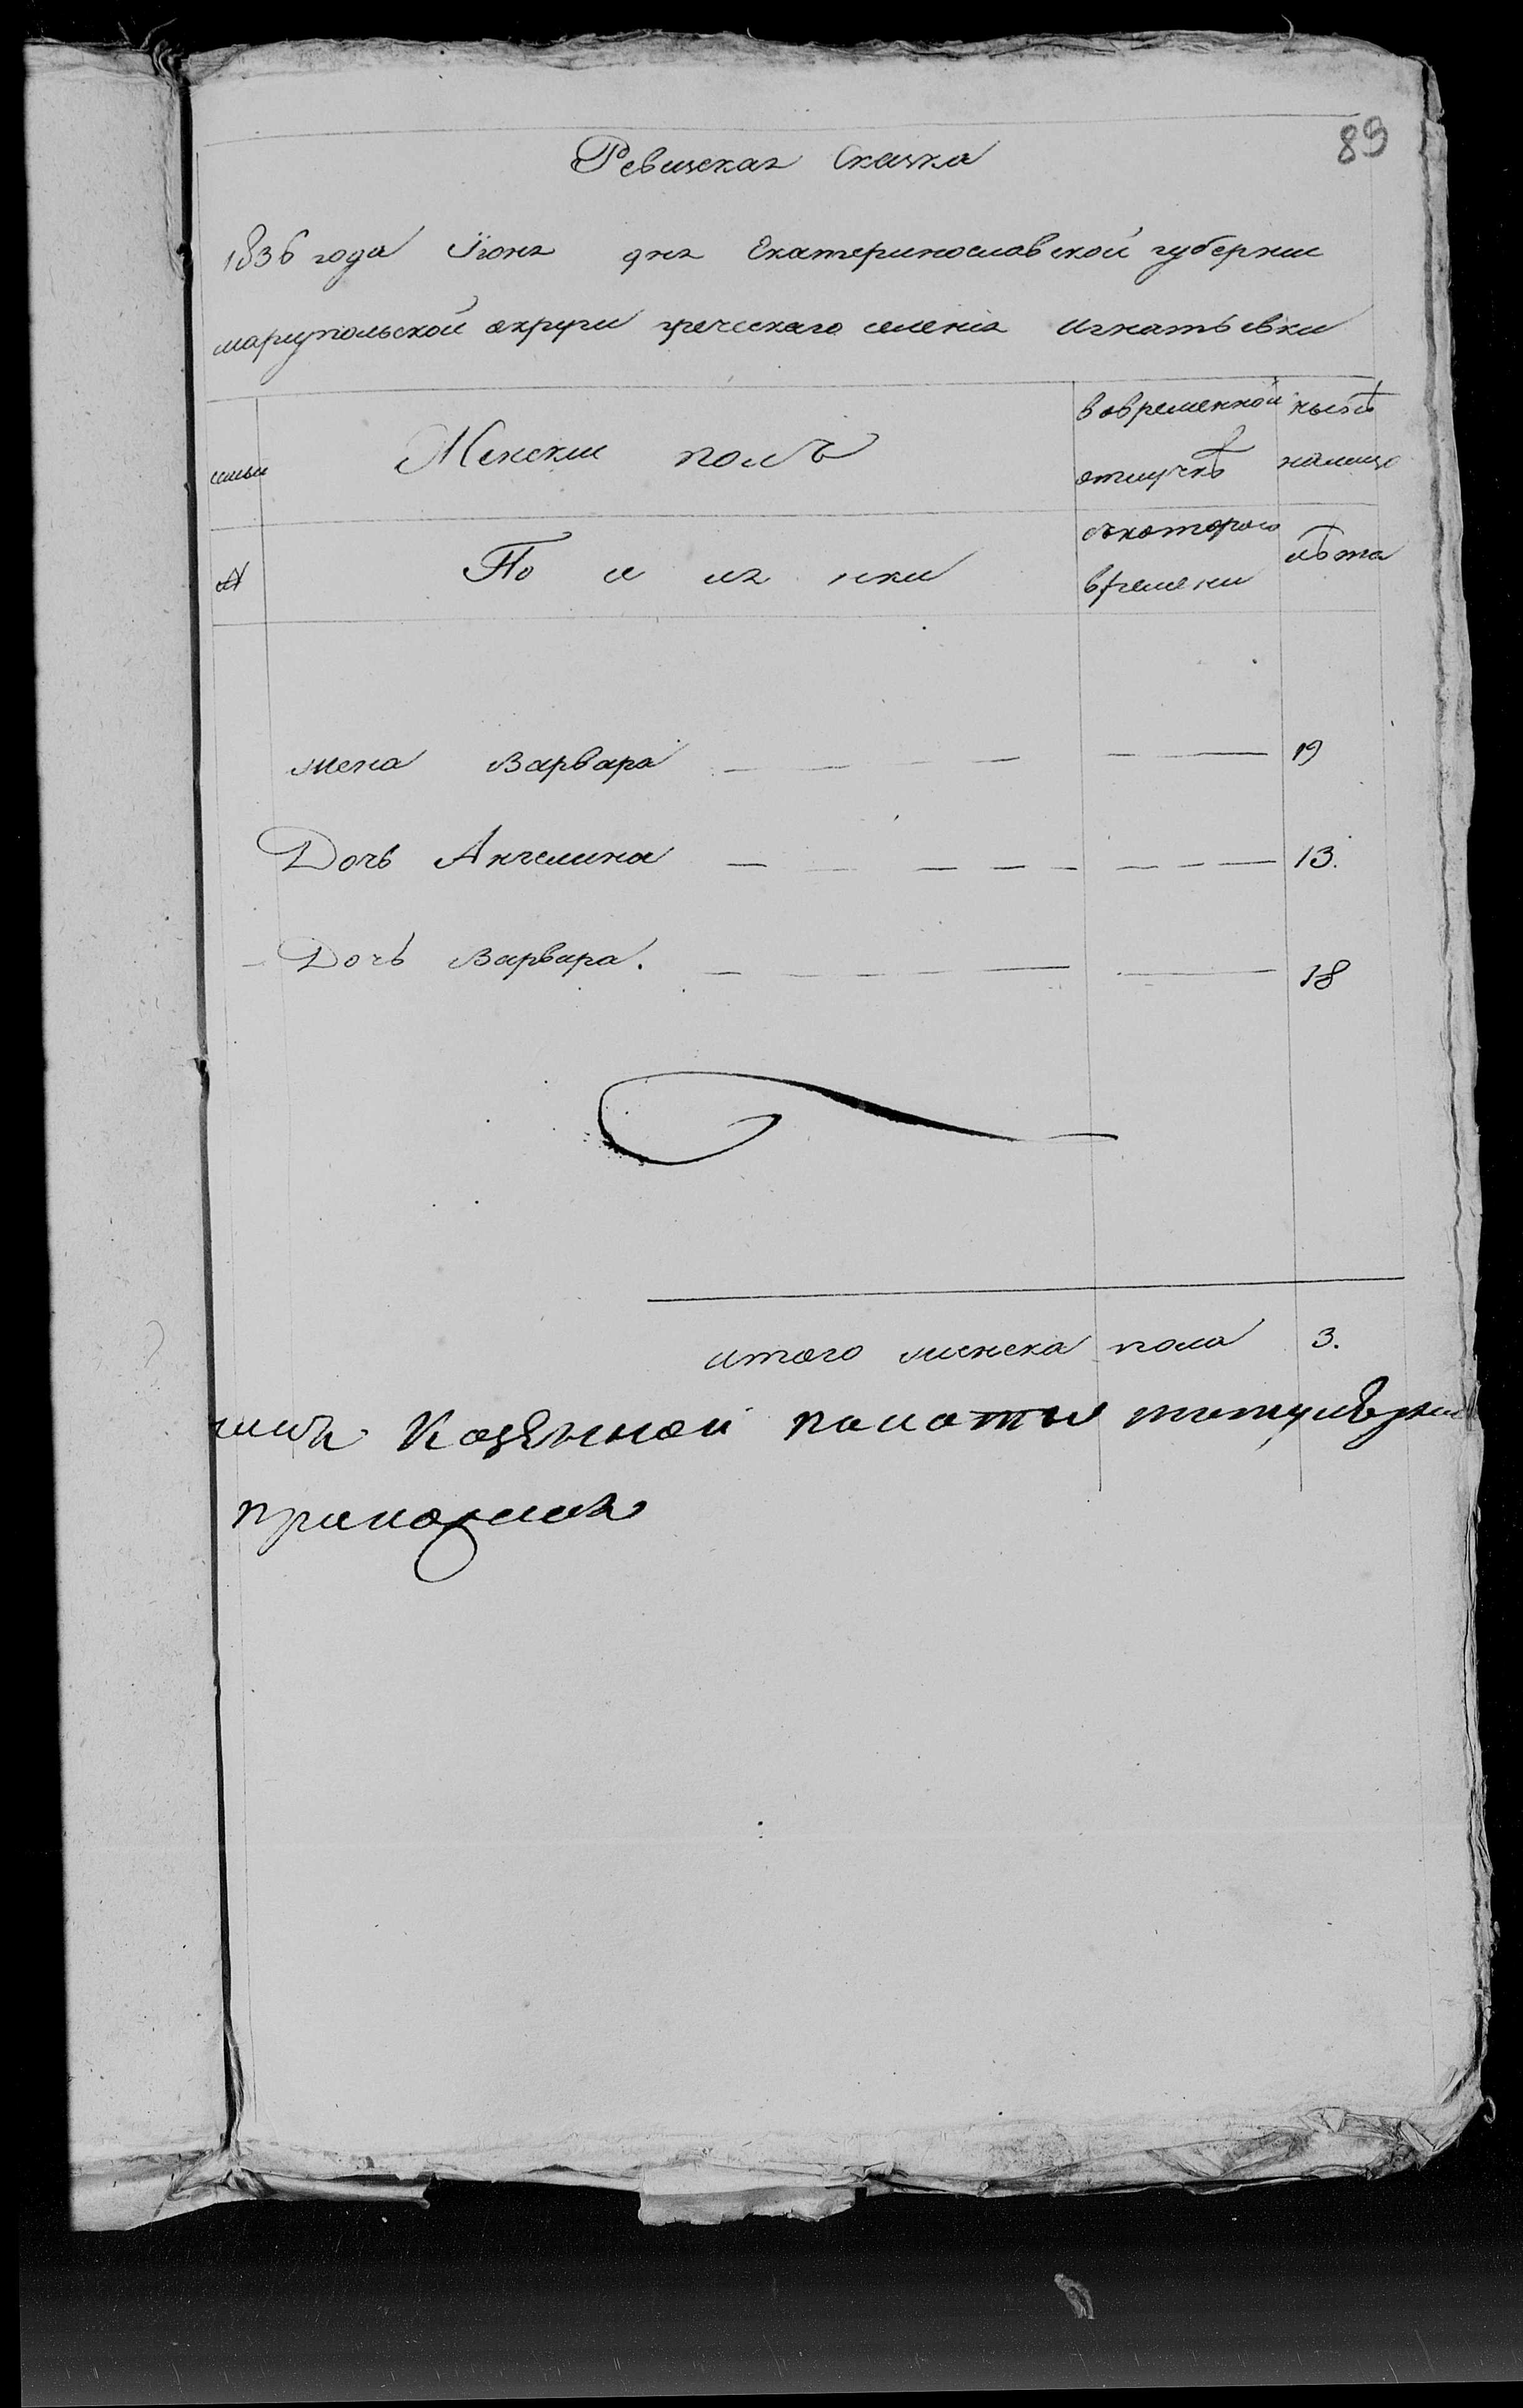 89
Ревизская Сказка
1836 года Іюня дня Екатеринославской губернии
мариупольской округи греческаго селенія Игнатьевки
семьи
Женски полъ
вовременной
отлучкѣ
нынѣ
налицо
№
По и мя нки
съкотораго
времени
лѣта
жена Варвара — — — — — — 19
Дочь Ангелина — — — — — — — — 13.
Дочь Варвара. — — — — — 18
итого женска пола 3.
Казенной палаты титулярн